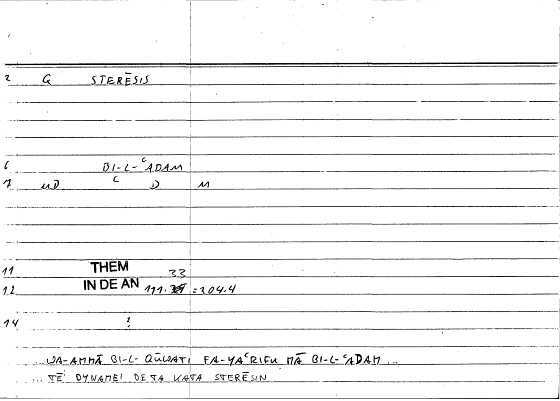 2 G STERĒSIS
6 BI-L-ᶜADAM
7 MD ᶜ D M
11 THEM 33
12 IN DE AN 111. =204.4
14 !
...WA-AMMĀ BI-L-QŪWATI FA-YAᶜRIFU MĀ BI-L-ᶜADAM...
...TĒ DYNAMEI DE TA KATA STERĒSIN